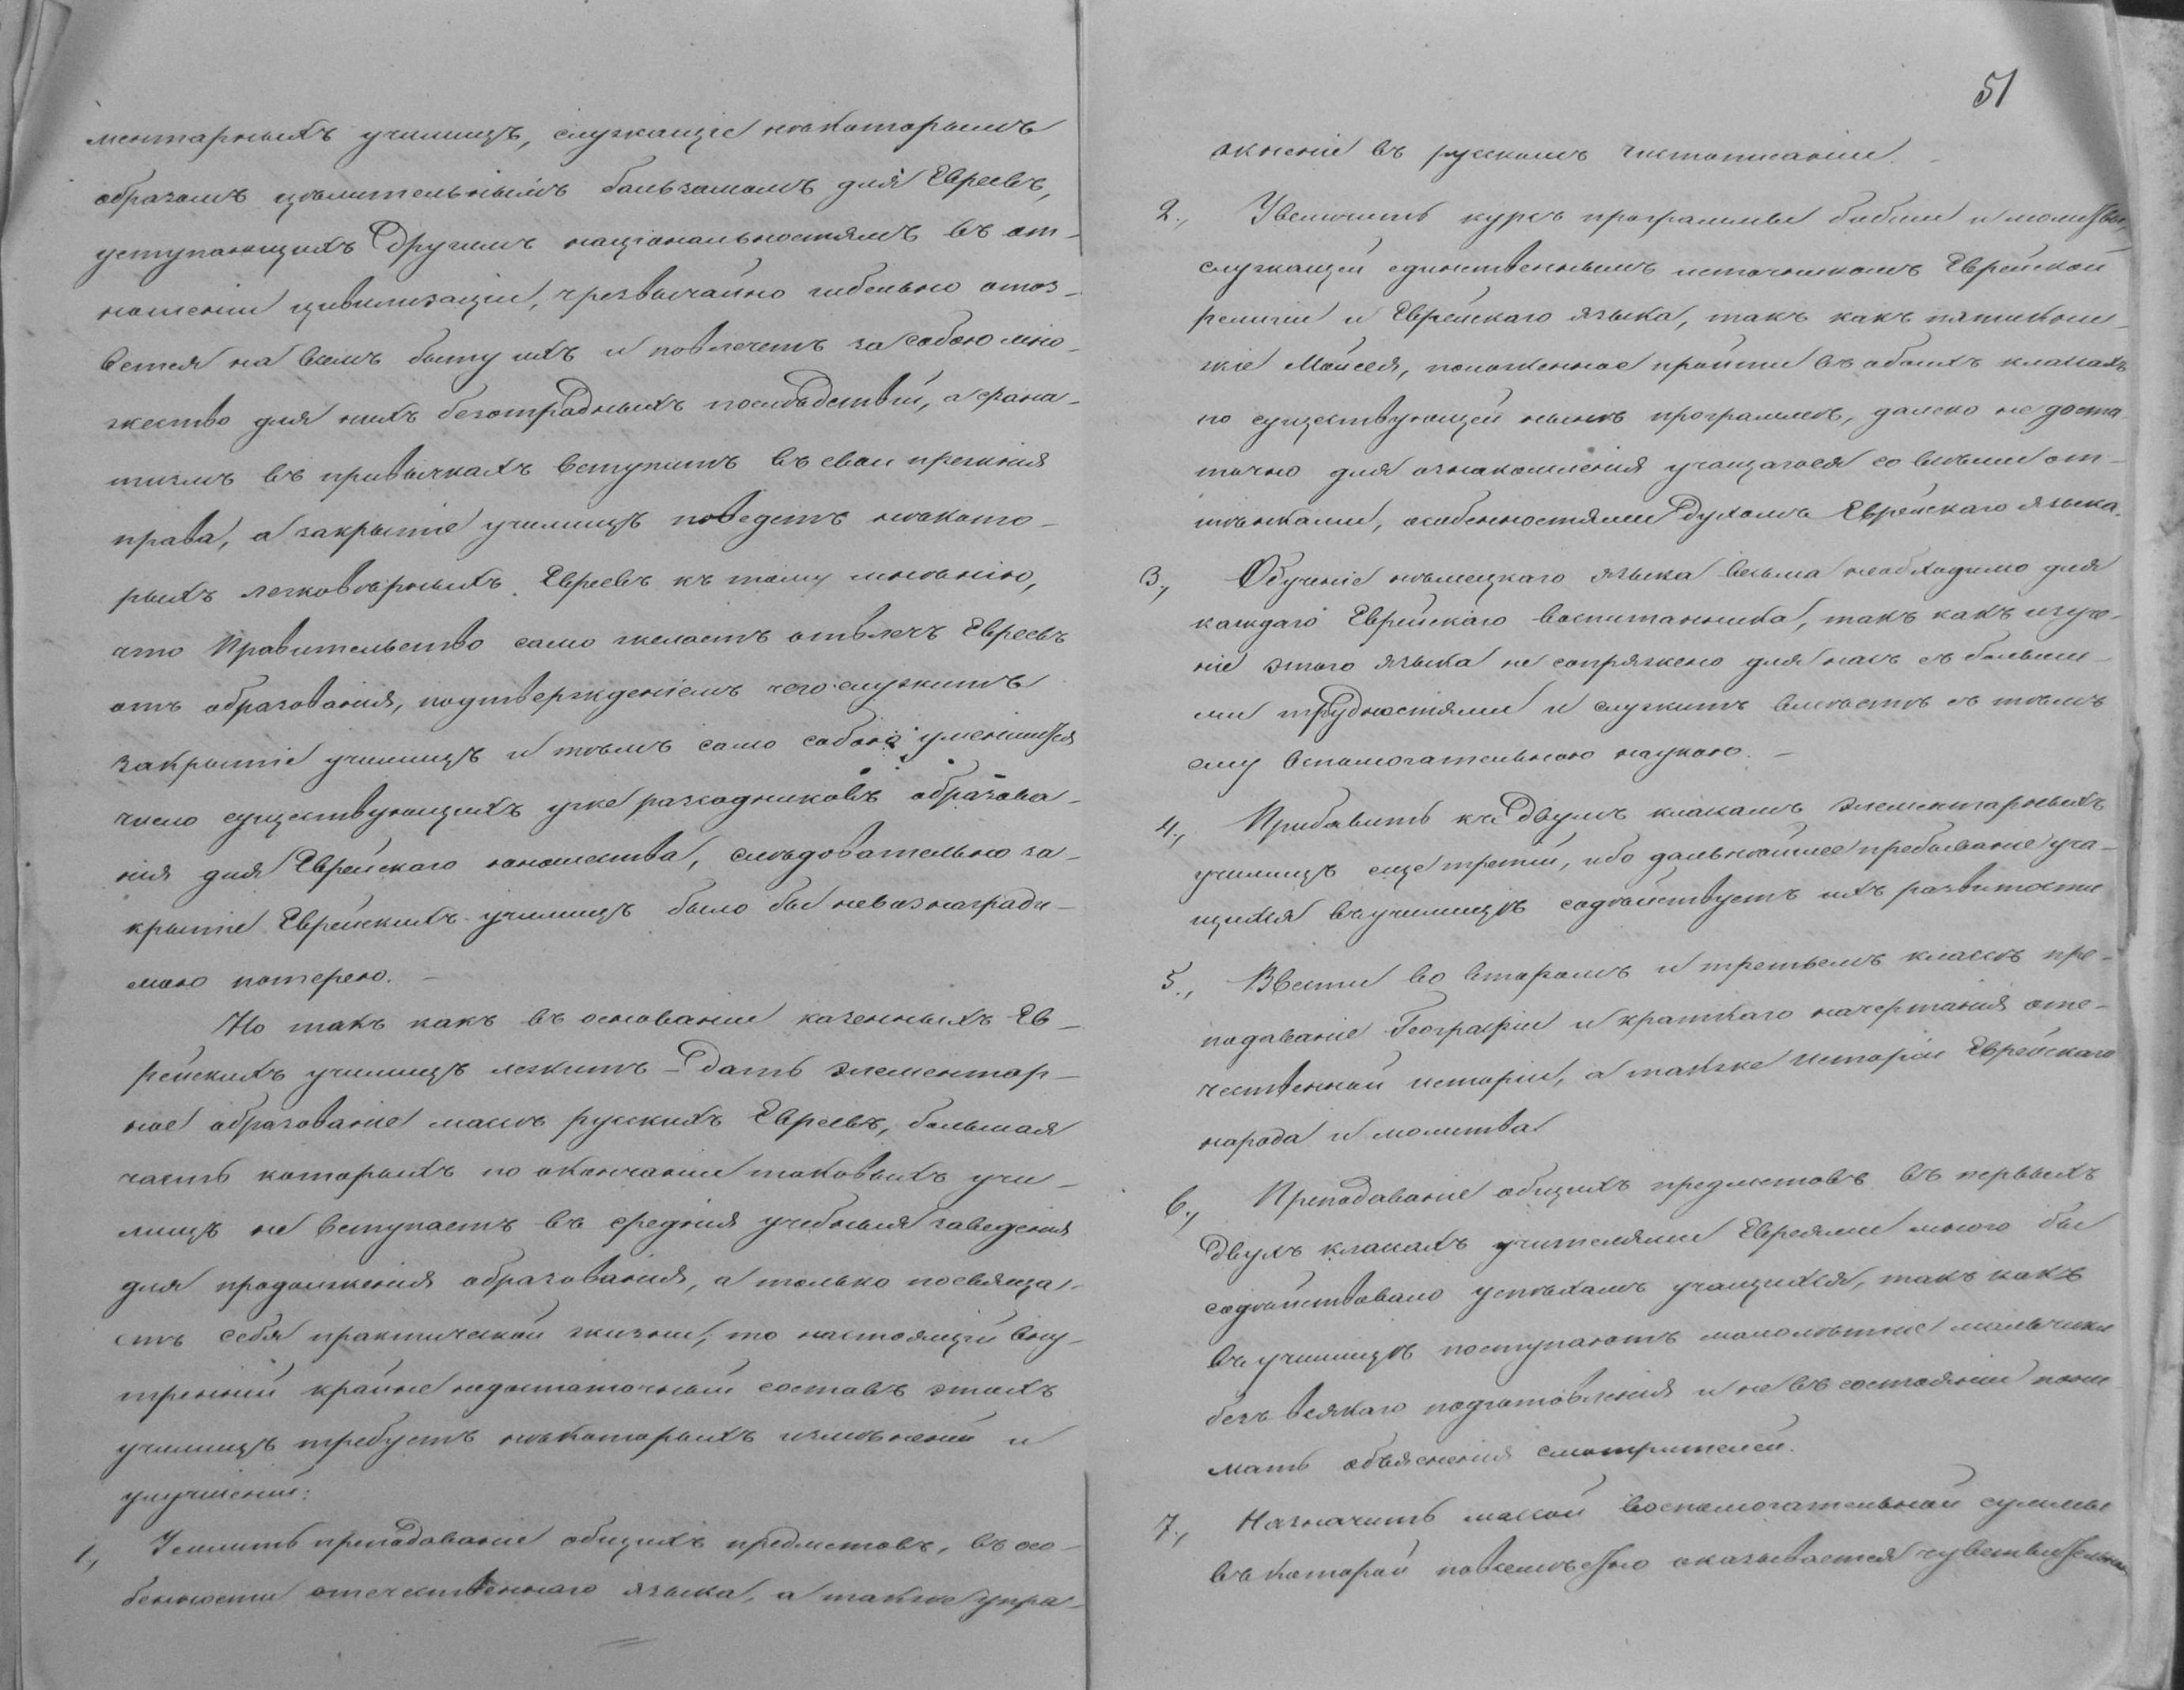 ментарныхъ училищъ, служащіе нѣкоторымъ
образомъ цѣлительнымъ бальзамомъ для Евреевъ,
уступающихъ другимъ національностямъ въ от-
ношеніи цивилизаціи, чрезвычайно гибельно отоз-
вется на всемъ быту ихъ и повлечетъ за собою мно-
жество для нихъ безотрадныхъ послѣдствій, а фана-
тизмъ въ привычкахъ вступитъ въ свои прежнія
права, а закрытіе училищъ поведетъ нѣкото-
рыхъ легковѣрныхъ Евреевъ къ тому мнѣнію,
что Правительство само желаетъ отвлечь Евреевъ
отъ образованія, подтвержденіемъ чего служитъ
закрытіе училищъ и тѣмъ само собою уменьшится
число существующихъ уже разсадниковъ образова-
нія для Еврейскаго юношества, слѣдовательно за-
крытіе Еврейскихъ училищъ было бы невознагради-
мою потерею. -
Но такъ какъ въ основаніи казенныхъ Ев-
рейскихъ училищъ лежитъ - дать элементар-
ное образованіе массѣ русскихъ Евреевъ, большая
часть которыхъ по окончаніи таковыхъ учи-
лищъ не вступаетъ въ среднія учебныя заведенія
для продолженія образованія, а только посвяща-
етъ себя практической жизни; то настоящій вну-
тренній крайне недостаточный составъ этихъ
училищъ требуетъ нѣкоторыхъ измѣненій и
улучшеній:
1., Усилить преподаваніе общихъ предметовъ, въ осо-
бенности отечественнаго языка, а также упра-
51
жненіе въ русскомъ чистописаніи. -
2., Увеличить курсъ программы библіи и молитвы,
служащей единственнымъ источникомъ Еврейской
религіи и Еврейскаго языка, такъ какъ пятикни-
жіе Моисея, положенное пройти въ обоихъ классахъ
по существующей нынѣ программѣ, далеко не доста
точно для ознакомленія учащагося со всѣми от-
тѣнками, особенностями духомъ Еврейскаго языка.
3., Обученіе нѣмецкаго языка весьма необходимо для
каждаго Еврейскаго воспитанника, такъ какъ изуче-
ніе этого языка не сопряжено для нихъ съ больши-
ми трудностями и служитъ вмѣстѣ съ тѣмъ
ему вспомогательною наукою. -
4., Прибавить къ двумъ классамъ элементарныхъ
училищъ еще третій, ибо дальнѣйшее пребываніе уча-
щихся въ училищѣ содѣйствуетъ ихъ развитости
5., Ввести во второмъ и третьемъ классѣ пре-
подаваніе Географіи и краткаго начертанія оте-
чественной исторіи, а также исторіи Еврейскаго
народа и молитва
6., Преподаваніе общихъ предметовъ въ первыхъ
двухъ классахъ учителями Евреями много бы
содѣйствовало успѣхамъ учащихся, такъ какъ
въ училищѣ поступаютъ малолѣтніе мальчики
безъ всякаго подготовленія и не въ состояніи пони
мать объясненія смотрителей.
7., Назначить малой воспомогательной суммы
въ которой повсемѣстно оказывается